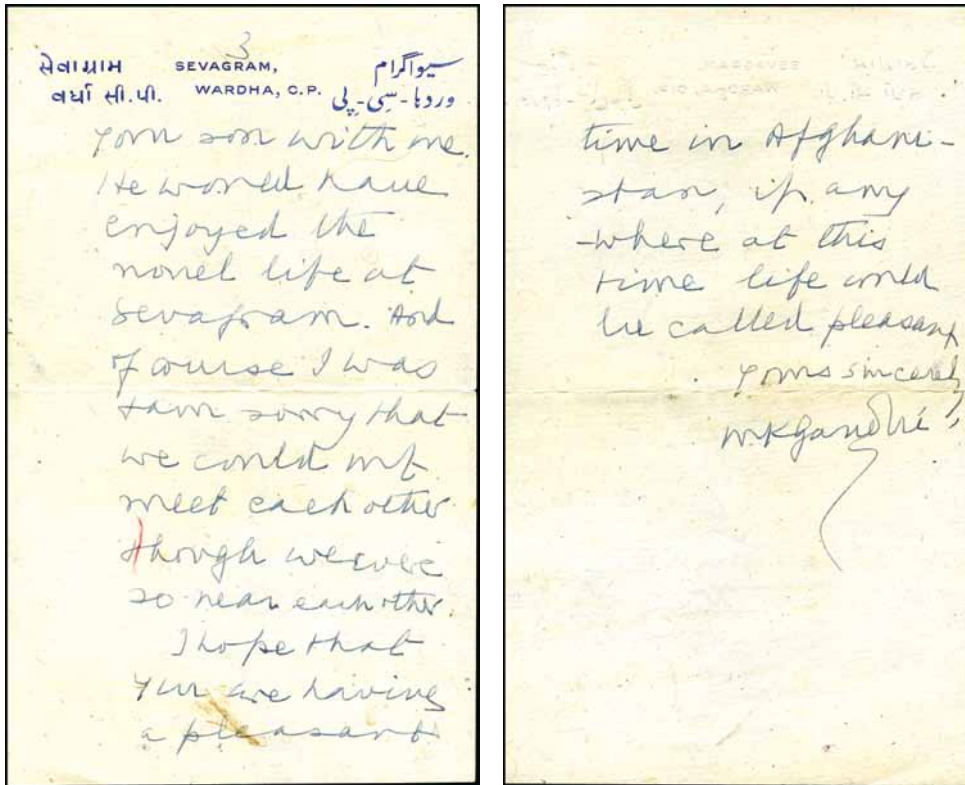 3
सेवाग्राम SEVAGRAM, سیواگرام
वर्धा सी.पी. WARDHA, C.P. وردہا-سِی-پِی
your son with me.
He would have
enjoyed the
novel life at
Sevagram. And
of course I was
+ am sorry that
we could not
meet each other
though we were
so near each other.
I hope that
you are having
a pleasant
time in Afghani-
stan, if any
-where at this
time life could
be called pleasant
yours sincerely,
MKGandhi